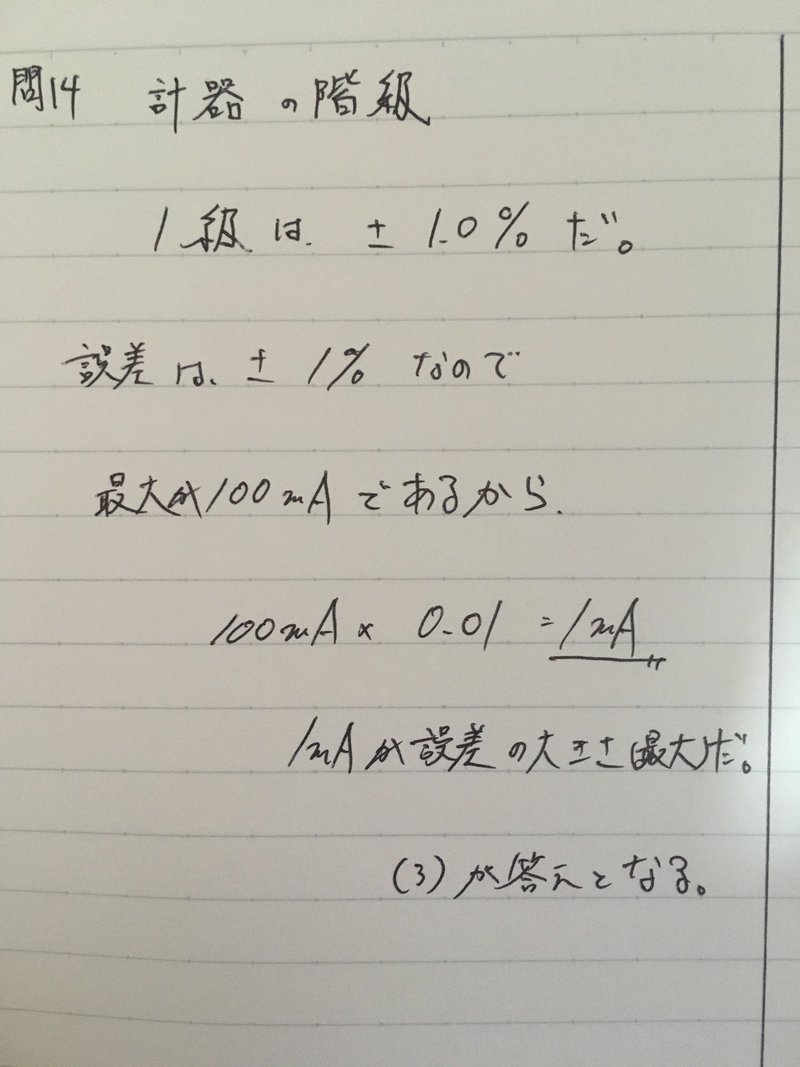 問14 計器の階級
1級は、±1.0%だ。
誤差は、±1%なので
最大が100mAであるから、
100mA × 0.01 = 1mA〃
1mAが誤差の大きさ(最大)だ。
(3)が答えとなる。